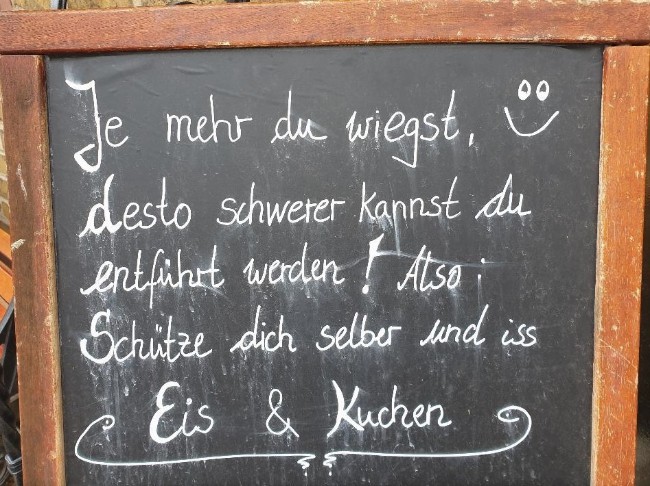 Je mehr du wiegst,
desto schwerer kannst du
entführt werden! Also:
Schütze dich selber und iss
Eis & Kuchen